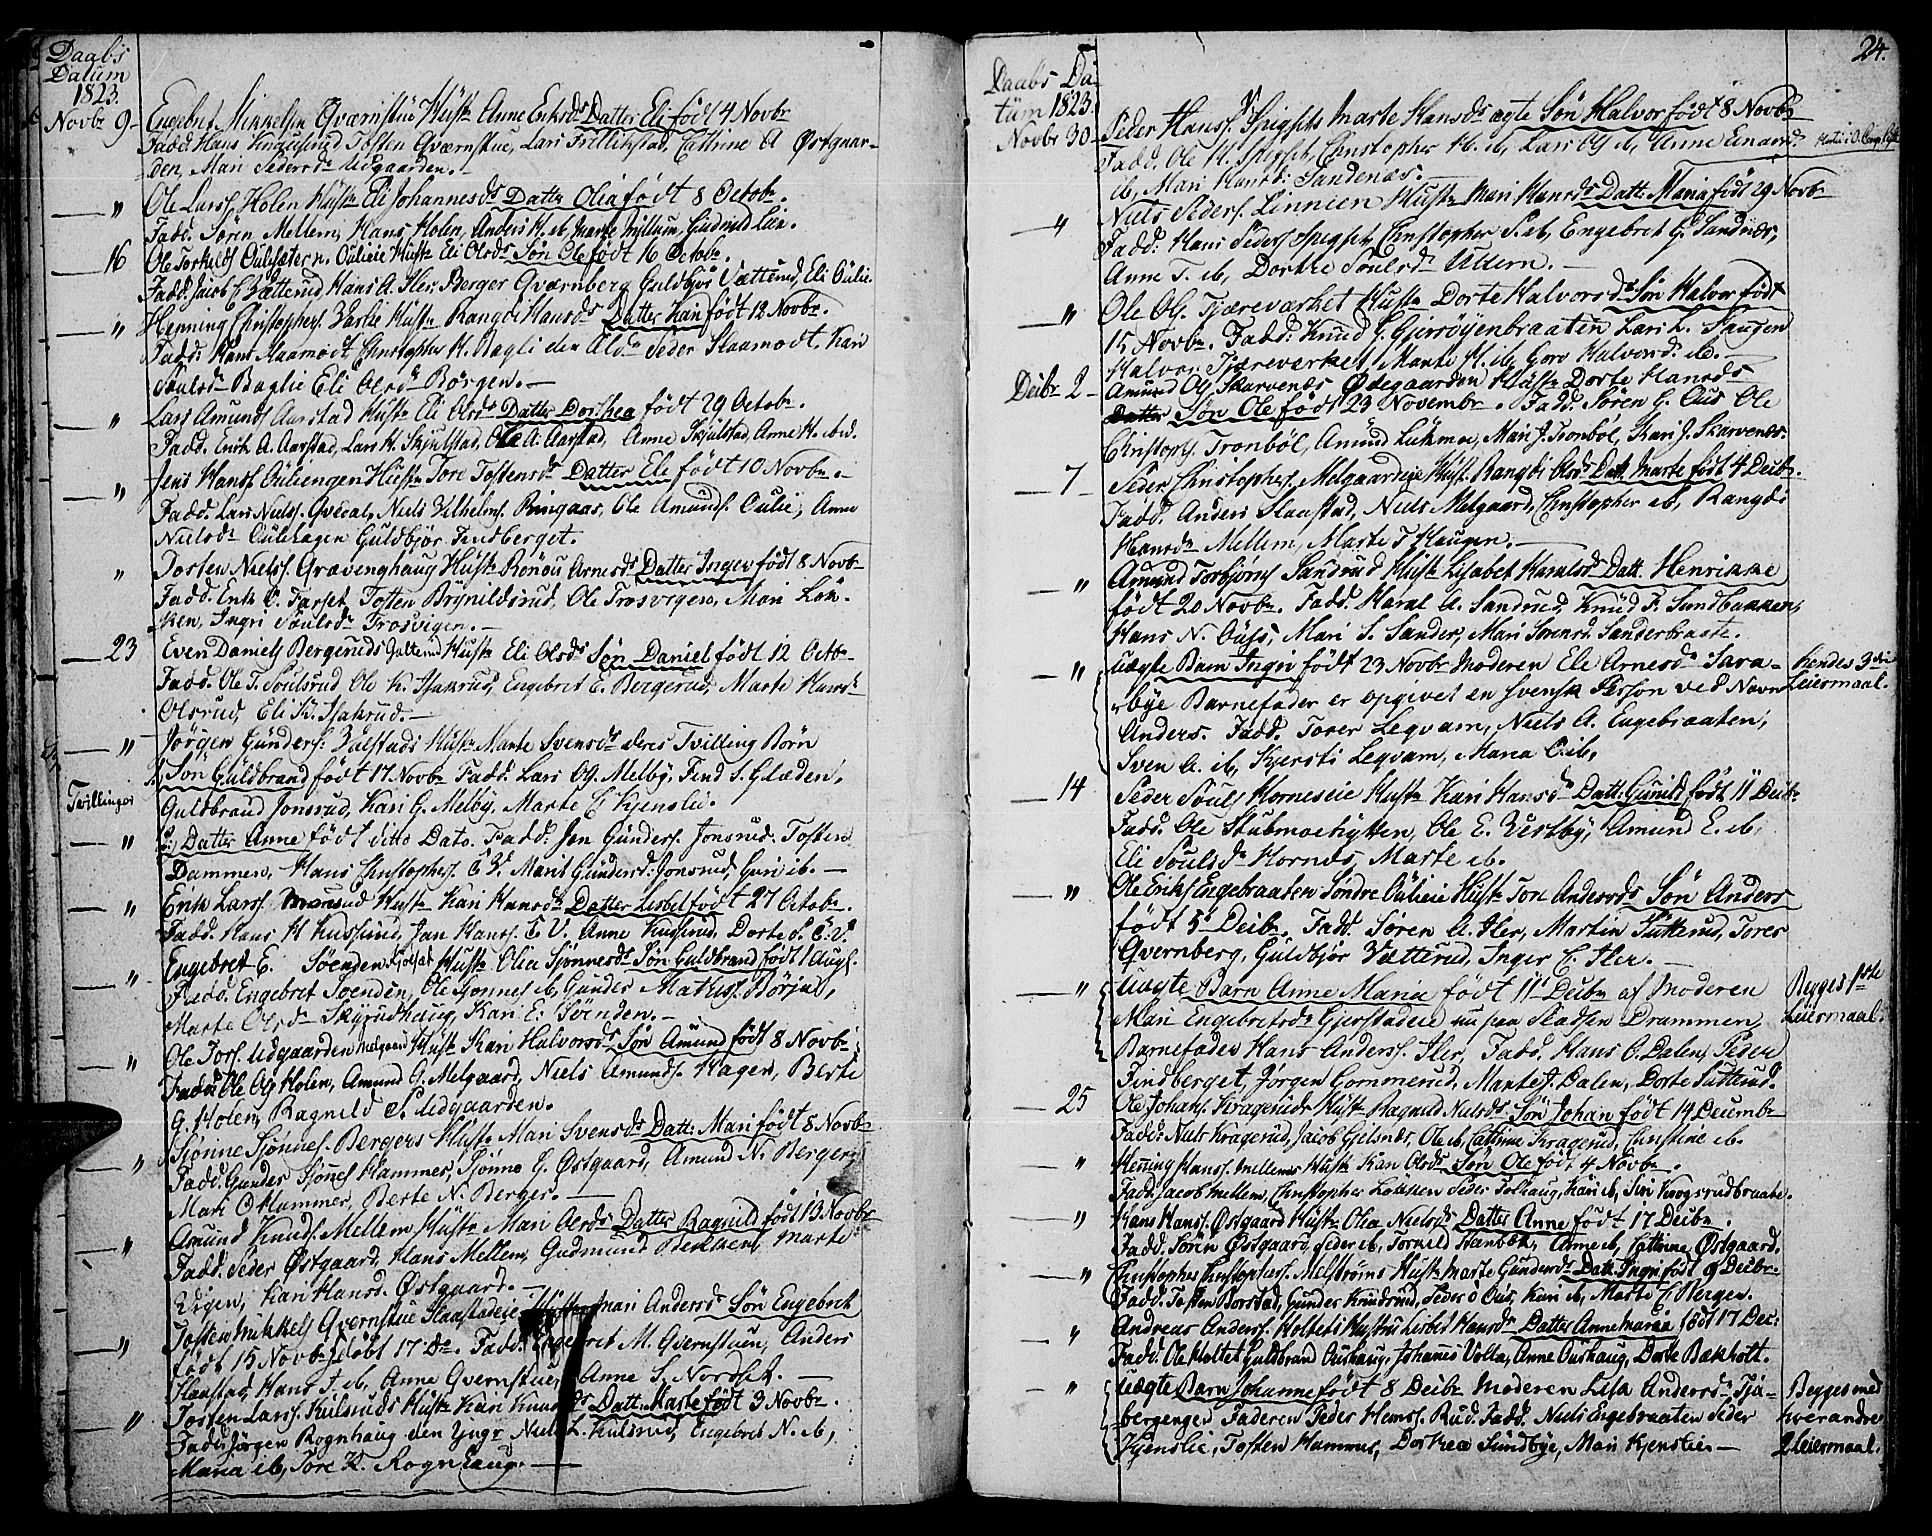 Daabs
Datum
1823.
Novbr 9 Engebret Mikkelsen Qværnstue Hust Anne Eriksdr Datter Eli født 4 Novbr
Fadd: Hans Knudsrud Tosten Qværnstue, Lars Trillikstad, Cattrine A Østgaar-
den, Mari Pedersdr Udgaarden.
" Ole Larss. Holen Hust Eli Johannesdr Datter Olia født 8 Octobr.
Fadd. Søren Mellem, Hans Holen, Anders H. ib, Marte Mellum, Gudmud Lien.
16 Ole Torkelds Oulisætern. Oulieie Hust Eli Olsdr Søn Ole født 16 Octobr.
Fadd. Jacob C Vætterud, Hans A. Iler Berger Qværnberg Guldbjør Vætterud, Eli Oulie.
" Henning Christophers. Baglie Hust Rangdi Hansdr Datter Kari født 12 Novbr.
Fadd: Hans Aamodt, Christopher H. Bagli den Eldr Peder Slaamodt, Kari
Poulsdr Baglie Eli Olsdr Børgen.
" Lars Amunds Aarstad Hust Eli Olsdr Datter Dorthea født 29 Octobr.
Fadd. Erich A. Aarstad, Lars H. Skjulstad, Ole A. Aarstad, Anne Skjulstad, Anne H. ibid.
" Jens Hans Ouliengen Hust Tore Tostensdr Datter Ele født 10 Novbr.
Fadd. Lars Nielss. Qvedal, Niels Vilhelms. Ringaas, Ole Amunds. Oulie, Anne
Nielsdr Oulihagen Guldbjør Findberget.
" Tosten Niels. Gravenghaug Hust Rønou Arnesdr Datter Inger født 8 Novbr
Fadd. Erik O. Farset, Tosten Brynildsrud, Ole Trosvigen, Mari Løk-
ken, Ingri Poulsdr Trosvigen.
23 Even Daniels Bergeruds Galterud Hust Eli Olsdr Søn Daniel født 12 Octbr
Fadd. Ole T. Poulsrud Ole K. Isakrud, Engebret E. Bergerud, Marte Hansdr
Olsrud, Eli K. Isakrud.
" Jørgen Gunders: Valstads Hust Marte Svensdr deres Tvilling Børn
Tvillinger
1. Søn Guldbrand født 17 Novbr Fadd. Lars Ols. Melby, Find S. Glæden,
Guldbrand Jonsrud, Kari G. Melby, Marte C Kjenslie.
" 2. Datter Anne født ditto Dato. Fadd. Jon Gunders. Jonsrud. Tosten
Dammen, Hans Christophers. E. V. Marit Gundersd: Jonsrud, Guri ib.
" Erik Larss. Hust Kari Hansdr Datter Lisbet født 27 Octobr.
Fadd. Hans H Kusserud, Jan Hanss. E. V. Anne Kusserud, Dorte P. E. V.
" Engebret E. Søenden Hust Olia Sjønnesdr Søn Guldbrand født 1 Augs.
Fadd. Engebret Søenden, Ole Sjønnes ib, Gunder Mathiss. Børjul,
Marte Olsdr Skyrudhaug, Kari E. Søenden.
" Ole Tors. Udgaarden Melgaard Hust Kari Halvorsdr Søn Amund født 8 Novbr
Fadd Ole Ols Holen, Amund G. Melgaard, Niels Amunds. Hagen, Berte
G. Holen, Ragnild P. Udgaarden.
" Sjønne Sjønnes. Bergers Hust Mari Svensdr Datt: Mari født 8 Novbr
Fadd. Gunder Sjønnes Hammer, Sjønne G. Østgaard, Amund N. Berger
Mari O Hammer, Berte N. Berger.
" Amund Knuds. Mellem Hust Mari Olsdr Datter Ragnild født 13 Novbr
Fadd. Peder Østgaard, Hans Mellem, Gudmund Bekken, Marte
Vigen, Kari Hansd. Østgaard.
" Tosten Mikkels Qvernstue Slaastadeie Hust Mari Andersdr Søn Engebret
født 15 Novbr døbt 17 Do. Fadd. Engebret M. Qvernstuen, Anders
Slaastad, Hans A. ib, Anne Qvernstue, Anne S. Nordset.
" Tosten Larss. Kulsruds Hust Kari Knudsdr Datt. Marte født 3 Novbr.
Fadd: Jørgen Rognhaug den Yngr Niels L. Kulsrud, Engebret N. ib,
Maria ib, Tore K. Rognhaug.
24.
Daabs Da-
tum 1823
Novbr 30 Peder Hanss. Spigset Marte Hansdr ægte Søn Halvor født 8 Novbr
Fadd. Ole H. Spigset, Christopher H. ib, Lars Ols ib, Anne Einarsdr
ib, Mari Hansd: Sandenæs.
" Niels Peders. Linnien Hust Mari Hansdr Datt. Maria født 29 Novb
Fadd: Hans Peders Spigset, Christopher P. ib, Engebret G. Sandnæs,
Anne T. ib, Dorthe Poulsdr Uldern.
" Ole Ols. Tjæreværket Hust Dorte Halvorsdr Søn Halvor født
15 Novbr. Fadd: Knud G. Gjersøyenbraaten Lars L. Haugen
Halvor Tjæreverket, Marte H. ib, Goro Halvorsd. ib.
Decbr 2 Amund Ols Skarvenæs Ødegaarden Hust Dorte Hansdr
Datter Søn Ole født 23 Novembr. Fadd. Søren G. Ous Ole
Christophs. Tronbøl, Amund Lukmoe, Mari J. Tronbøl, Kari J. Skarvenæs.
7 Peder Christophers. Melgaardeie Hust. Rangdi Olsdr Datt. Marte født 4 Decbr.
Fadd. Anders Slaastad, Niels Melgaard, Christopher ib, Rangdi
Hansdr Mellem, Marte T Haugen.
" Amund Torbjørns Sandrud Hust Lisabet Haralsdr Datt. Henrikke
født 20 Novbr. Fadd. Haral A. Sandrud, Knud P. Sundbakken,
Hans N. Ouss, Mari S. Sander, Mari Sørensd. Sanderbraate.
" uægte Barn Ingri født 23 Novbr Moderen Ele Arnesdr Sara- hendes 3die
bye Barnefader er opgivet en svensk Person ved Navn Leiermaal.
Anders. Fadd. Torer Leqvam, Niels A. Engebraaten,
Sven A. ib, Kjersti Leqvam, Maria C. ib,
14 Peder Pouls Horneseie Hust Kari Hansdr Datt. Gunild født 11 Decbr.
Fadd. Ole Stubmoehytten, Ole E. Vestby, Amund E. ib,
Eli Poulsdr Hornes, Marte ib.
" Ole Eriks Engebraaten Søndre Oulieie Hust Tori Andersdr Søn Anders
født 5 Decbr. Fadd. Søren A. Iler, Martin Sutterud, Torer
Qvernberg, Guldbjør Vætterud, Inger C. Iler.
" uægte Barn Anne Maria født 11 Decbr af Moderen Begges 1ste
Mari Engebretsdr Gjerstadeie nu paa Pladsen Drammen Leiermaal.
Barnefader Hans Anderss. Iler, Fadd. Hans O. Dalen, Peder
Findberget, Jørgen Gommerud, Marte J. Dalen, Dorte Sutterud.
25 Ole Johans. Krageruds Hust Ragnild Nielsdr Søn Johan født 14 Decembr
Fadd: Niels Kragerud, Jacob Gjelsnæs, Ole ib, Cattrine Kragerud, Christine ib.
" Henning Hanss. Mellems Hust Kari Olsdr Søn Ole født 4 Novbr.
Fadd. Jacob Mellem, Christopher Løkken Peder Tolhaug, Kari ib, Siri Krogsrudbraate.
" Hans Hans. Østgaard Hust Olea Nielsdr Datter Anne født 17 Decbr.
Fadd. Søren Østgaard, Peder ib, Torkild Stenbek, Anne ib, Cattrine Østgaard.
" Christopher Christophers. Melstrøms Hust Marte Gundersdr Datt. Ingri født 9 Decbr
Fadd. Tosten Borstad, Gunder Knudsrud, Peder O Ous, Kari ib, Marte C. Bergen.
" Andreas Anderss. Holtets Hustru Lisbet Hansdr Datter Anne Maria født 17 Dec:
Fadd. Ole Holtet Guldbrand Oushaug, Johannes Volla, Anne Oushaug, Dorte Bakholt.
" uægte Barn Johanne født 8 Decbr Moderen Lisa Andersdr Tjæ- Begges med
bergenger Faderen Peder Hanss. Rud. Fadd. Niels Engebraaten Peder hverandre
Kjenslie, Tosten Hammer, Dorthea Sundbye, Mari Kjenslie. 2 Leiermaal.